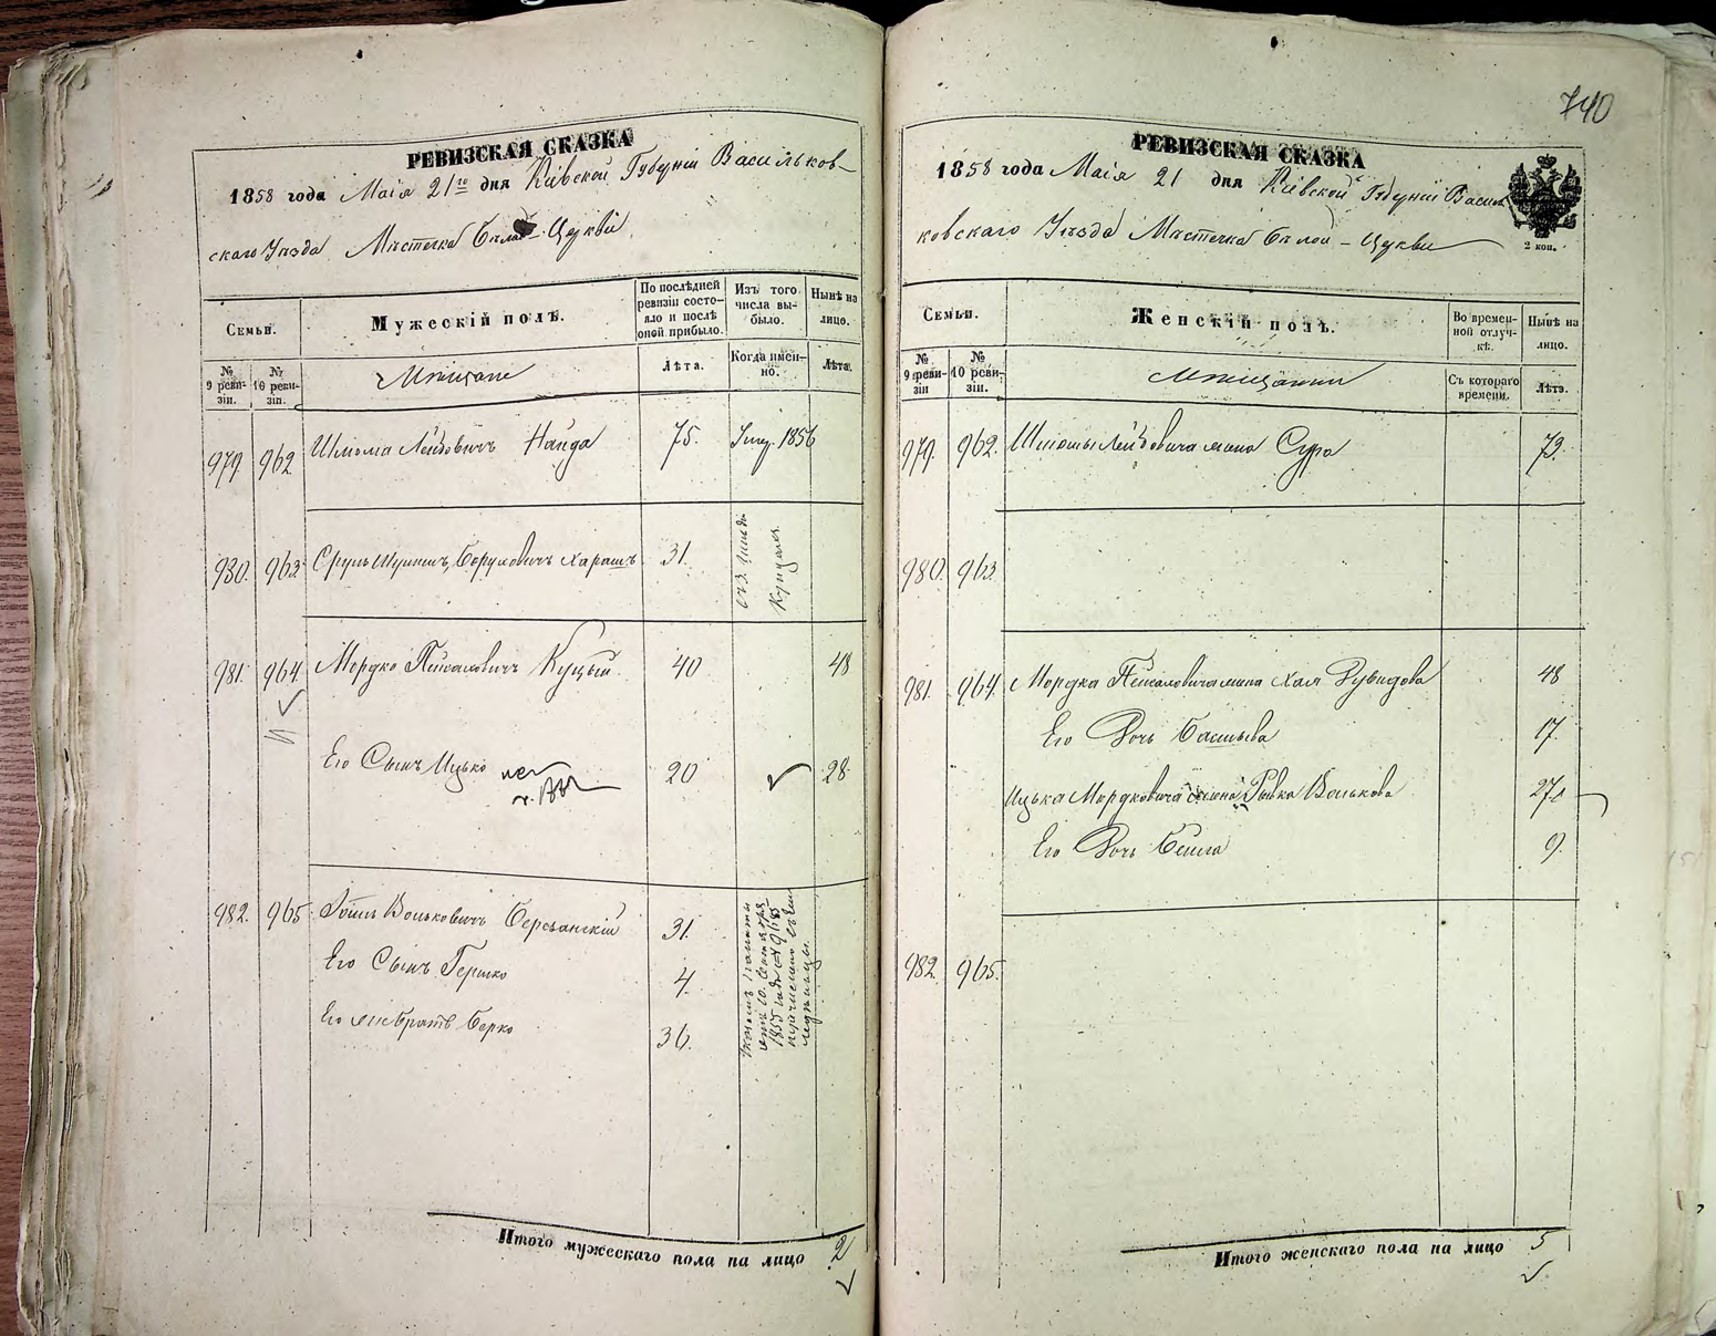 740
РЕВИЗСКАЯ СКАЗКА
1858 года Маія 21го дня Кіевской Губерніи Васильков-
скаго Уѣзда Мѣстечка Бѣлой-Церкви
Семьи.
Мужескій полъ.
По послѣдней ревизіи состо-
яло и послѣ оной прибыло.
Изъ того числа вы-
было.
Нынѣ на лицо.
№ 9 реви-
зіи.
№ 10 реви-
зіи.
Мѣщане
Лѣта.
Когда имен-
но.
Лѣта.
979. 962 Шлиома Лейбовичъ Найда 75. Умер. 1856
980. 963 Сруль Шулимъ Боруховичъ Харашъ 31.
981. 964 Мордко Пейсаховичъ Куцый 40 48
Его Сынъ Ицько 20 28
982. 965 Вольковичъ Березанскій 31.
Его Сынъ Гершко 4.
Его братъ Берко 36.
Итого мужескаго пола на лицо 2
РЕВИЗСКАЯ СКАЗКА
1858 года Маія 21 дня Кіевской Губерніи Василь
ковскаго Уѣзда Мѣстечка Бѣлой-Церкви
2 коп.
Семьи.
Женскій полъ.
Во времен-
ной отлуч-
кѣ.
Нынѣ на лицо.
№ 9 реви-
зіи
№ 10 реви-
зіи.
Мѣщанки
Съ котораго времени.
Лѣта.
979. 962. Шлиомы Лейбовича жена Сура 73.
980. 963
981. 964. Мордка Пейсаховича жена Хая Дувидова 48
Его Дочь Басшева 17.
Ицька Мордковича жена Рывка Волькова 27
Его Дочь Бейла 9.
982. 965.
Итого женскаго пола на лицо 5